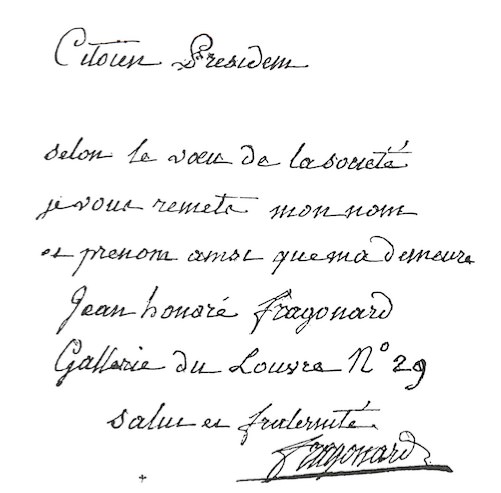 Citoien President
selon le vœu de la société
je vous remets mon nom
et prenom ainsi que ma demeure
Jean honoré fragonard
Gallerie du Louvre N° 29
salut et fraternité
fragonard